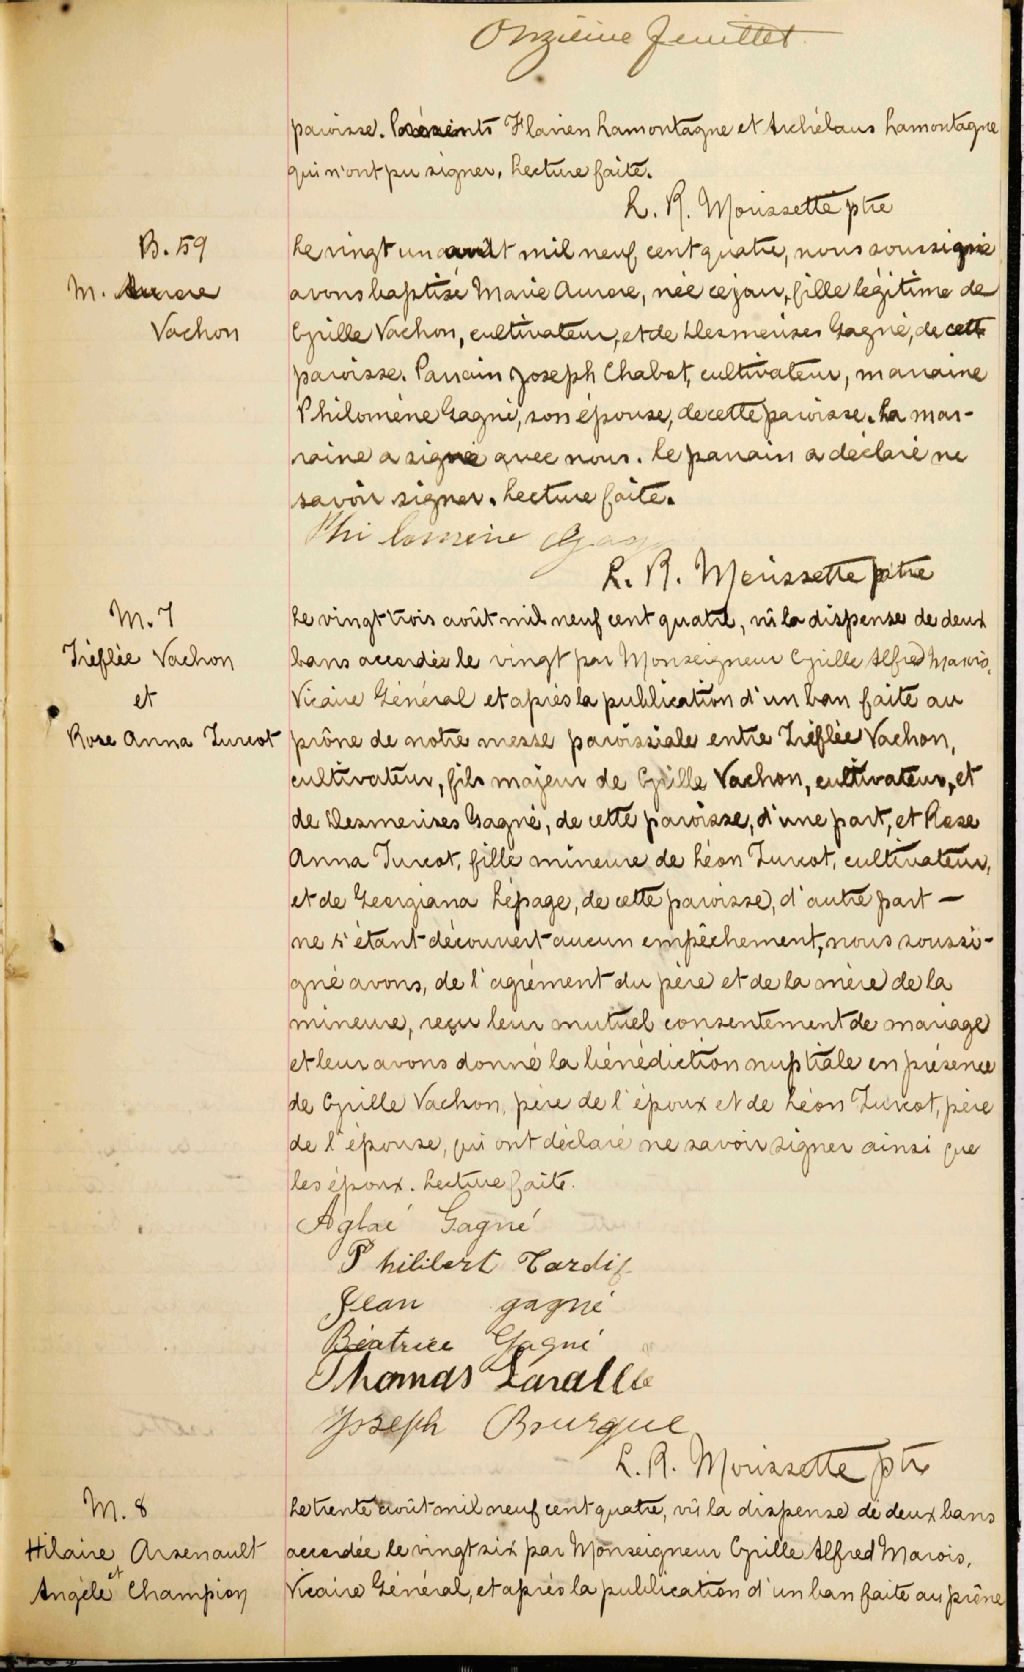 Onzième feuillet
paroisse. Présents Flavien Lamontagne et Archélaus Lamontagne
qui n'ont pu signer. Lecture faite.
L. R. Morissette ptre
B. 59
M. Aurore
Vachon
Le vingt un août mil neuf cent quatre, nous soussigné
avons baptisé Marie Aurore, née ce jour, fille légitime de
Cyrille Vachon, cultivateur, et de Desmerises Gagné, de cette
paroisse. Parrain Joseph Chabot, cultivateur, marraine
Philomène Gagné, son épouse, de cette paroisse. La mar-
raine a signé avec nous. Le parrain a déclaré ne
savoir signer. Lecture faite.
Philomène Gag
L. R. Morissette ptre
M. 7
Tréflée Vachon
et
Rose Anna Turcot
Le vingt trois août mil neuf cent quatre, vû la dispense de deux
bans accordée le vingt par Monseigneur Cyrille Alfred Marois,
Vicaire Général et après la publication d'un ban faite au
prône de notre messe paroissiale entre Tréflée Vachon,
cultivateur, fils majeur de Cyrille Vachon, cultivateur, et
de Desmerises Gagné, de cette paroisse, d'une part, et Rose
Anna Turcot, fille mineure de Léon Turcot, cultivateur,
et de Georgiana Lépage, de cette paroisse, d'autre part —
ne s'étant découvert aucun empêchement, nous soussi-
gné avons, de l'agrément du père et de la mère de la
mineure, reçu leur mutuel consentement de mariage
et leur avons donné la bénédiction nuptiale en présence
de Cyrille Vachon, père de l'époux et de Léon Turcot, père
de l'épouse, qui ont déclaré ne savoir signer ainsi que
les époux. Lecture faite.
Aglaé Gagné
Philibert Tardif
Jean gagné
Béatrice Gagné
Thomas Lavallée
Joseph Bourque
L. R. Morissette ptre
M. 8
Hilaire Arsenault
et
Angèle Champion
Le trente août mil neuf cent quatre, vû la dispense de deux bans
accordée le vingt six par Monseigneur Cyrille Alfred Marois,
Vicaire Général, et après la publication d'un ban faite au prône